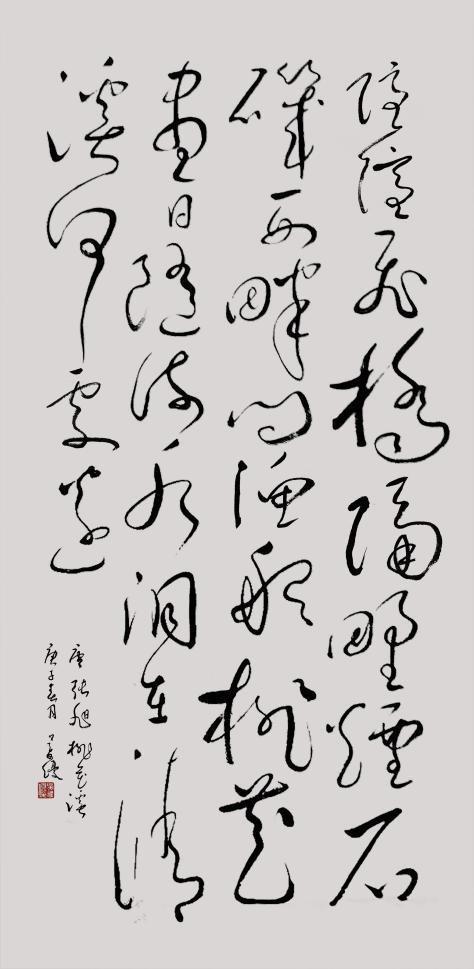 隱隱飛橋隔野煙石
磯西畔問漁船桃花
盡日隨流水洞在清
溪何處邊
唐張旭桃花溪
庚子春月